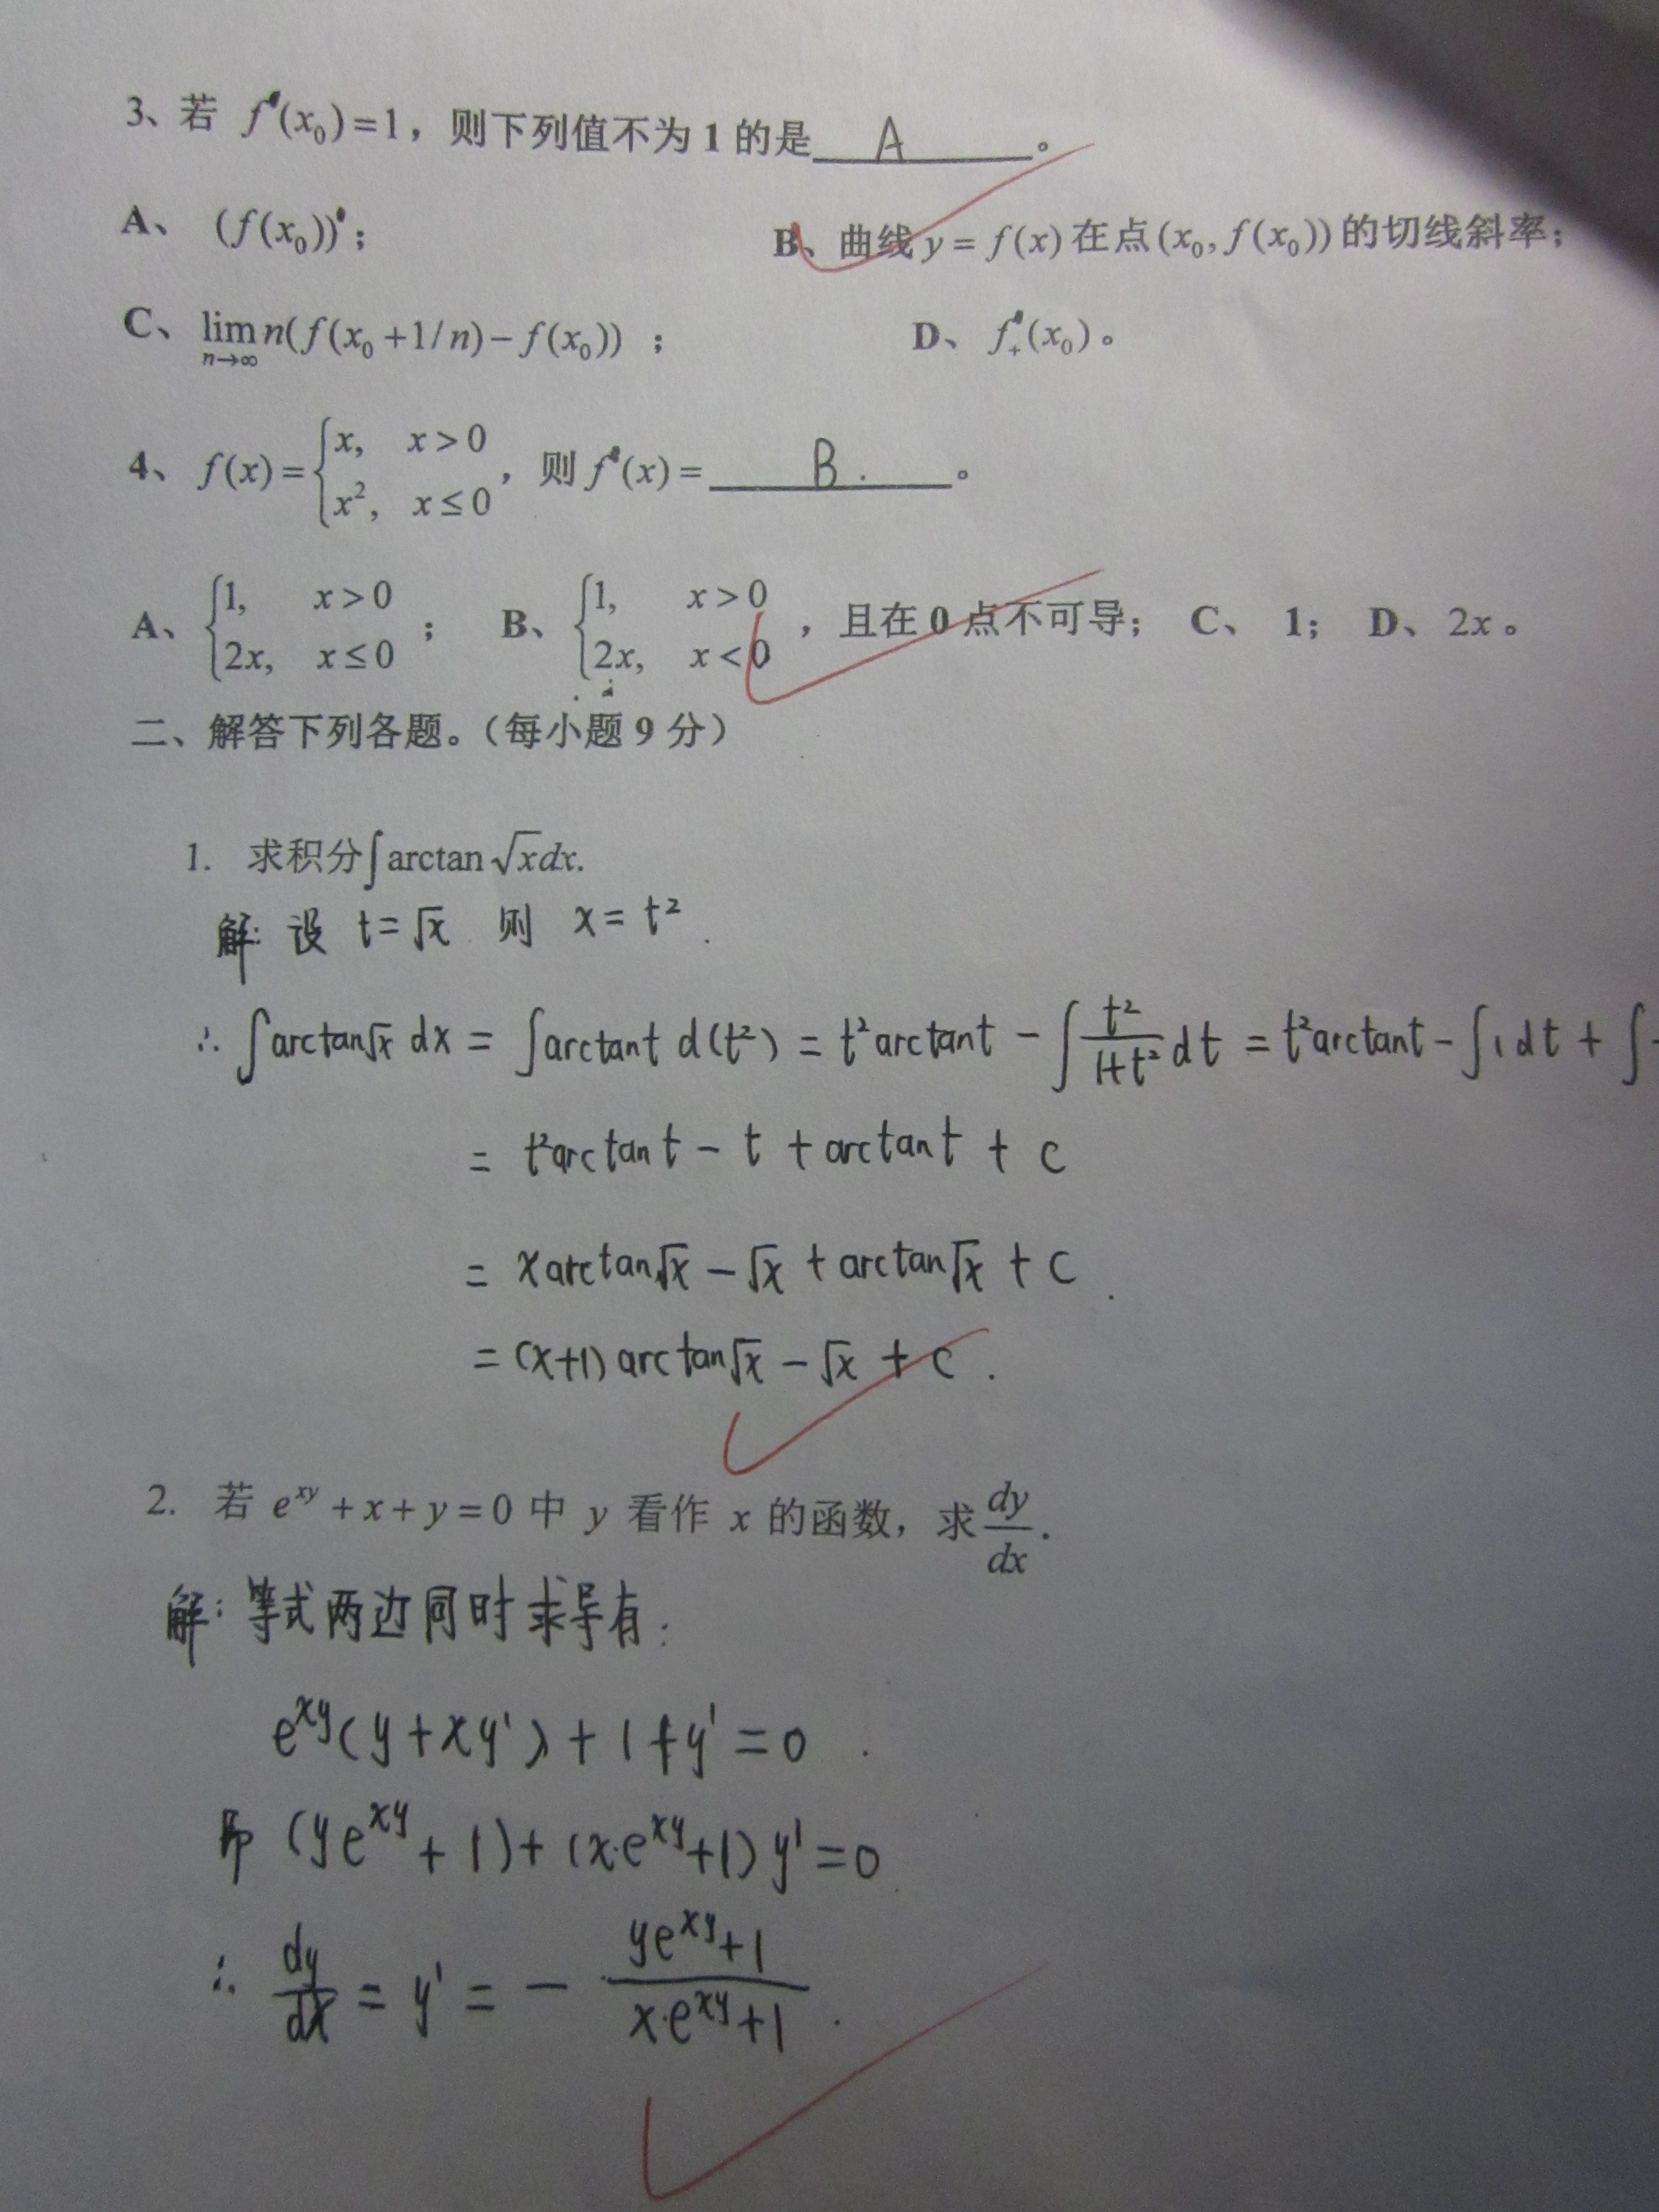 3、若 f′(x₀)=1，则下列值不为1的是 A 。
A、 (f(x₀))′； B、曲线 y = f(x) 在点 (x₀, f(x₀)) 的切线斜率；
C、 lim n→∞ n(f(x₀+1/n)−f(x₀)) ； D、 f₊′(x₀) 。
4、 f(x) = { x, x>0 ; x², x≤0 ，则 f′(x) = B. 。
A、 { 1, x>0 ; 2x, x≤0 ； B、 { 1, x>0 ; 2x, x<0 ，且在0点不可导； C、 1； D、 2x 。
二、解答下列各题。（每小题9分）
1. 求积分∫arctan √x dx.
解: 设 t=√x 则 x=t².
∴ ∫arctan√x dx = ∫arctant d(t²) = t²arctant − ∫ t²/(1+t²) dt = t²arctant − ∫1dt + ∫
= t²arctant − t + arctant + c
= xarctan√x − √x + arctan√x + c.
= (x+1)arctan√x − √x + c.
2. 若 e^{xy} + x + y = 0 中 y 看作 x 的函数，求 dy/dx .
解: 等式两边同时求导有:
e^{xy}(y+xy')+1+y'=0.
即 (ye^{xy}+1)+(x·e^{xy}+1)y'=0
∴ dy/dx = y' = − (ye^{xy}+1)/(x·e^{xy}+1).